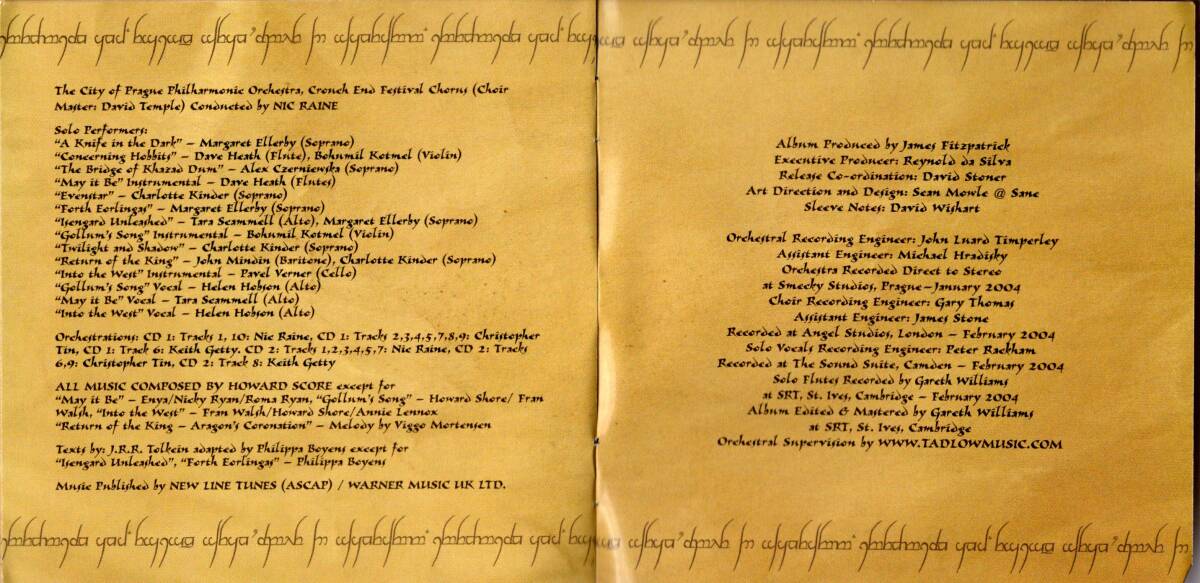 The City of Prague Philharmonic Orchestra, Crouch End Festival Chorus (Choir
Master: David Temple) Conducted by NIC RAINE
Solo Performers:
"A Knife in the Dark" – Margaret Ellerby (Soprano)
"Concerning Hobbits" – Dave Heath (Flute), Bohumil Kotmel (Violin)
"The Bridge of Khazad Dum" – Alex Czerniewska (Soprano)
"May it Be" Instrumental – Dave Heath (Flutes)
"Evenstar" – Charlotte Kinder (Soprano)
"Forth Eorlingas" – Margaret Ellerby (Soprano)
"Isengard Unleashed" – Tara Scammell (Alto), Margaret Ellerby (Soprano)
"Gollum's Song" Instrumental – Bohumil Kotmel (Violin)
"Twilight and Shadow" – Charlotte Kinder (Soprano)
"Return of the King" – John Mindin (Baritone), Charlotte Kinder (Soprano)
"Into the West" Instrumental – Pavel Verner (Cello)
"Gollum's Song" Vocal – Helen Hobson (Alto)
"May it Be" Vocal – Tara Scammell (Alto)
"Into the West" Vocal – Helen Hobson (Alto)
Orchestrations: CD 1: Tracks 1, 10: Nic Raine, CD 1: Tracks 2,3,4,5,7,8,9: Christopher
Tin, CD 1: Track 6: Keith Getty. CD 2: Tracks 1,2,3,4,5,7: Nic Raine, CD 2: Tracks
6,9: Christopher Tin, CD 2: Track 8: Keith Getty
ALL MUSIC COMPOSED BY HOWARD SCORE except for
"May it Be" – Enya/Nicky Ryan/Roma Ryan, "Gollum's Song" – Howard Shore/ Fran
Walsh, "Into the West" – Fran Walsh/Howard Shore/Annie Lennox
"Return of the King – Aragon's Coronation" – Melody by Viggo Mortensen
Texts by: J.R.R. Tolkein adapted by Philippa Boyens except for
"Isengard Unleashed", "Forth Eorlingas" – Philippa Boyens
Music Published by NEW LINE TUNES (ASCAP) / WARNER MUSIC UK LTD.
Album Produced by James Fitzpatrick
Executive Producer: Reynold da Silva
Release Co-ordination: David Stoner
Art Direction and Design: Sean Mowle @ Sane
Sleeve Notes: David Wishart
Orchestral Recording Engineer: John Luard Timperley
Assistant Engineer: Michael Hradisky
Orchestra Recorded Direct to Stereo
at Smecky Studios, Prague–January 2004
Choir Recording Engineer: Gary Thomas
Assistant Engineer: James Stone
Recorded at Angel Studios, London – February 2004
Solo Vocals Recording Engineer: Peter Rackham
Recorded at The Sound Suite, Camden – February 2004
Solo Flutes Recorded by Gareth Williams
at SRT, St. Ives, Cambridge – February 2004
Album Edited & Mastered by Gareth Williams
at SRT, St. Ives, Cambridge
Orchestral Supervision by WWW.TADLOWMUSIC.COM